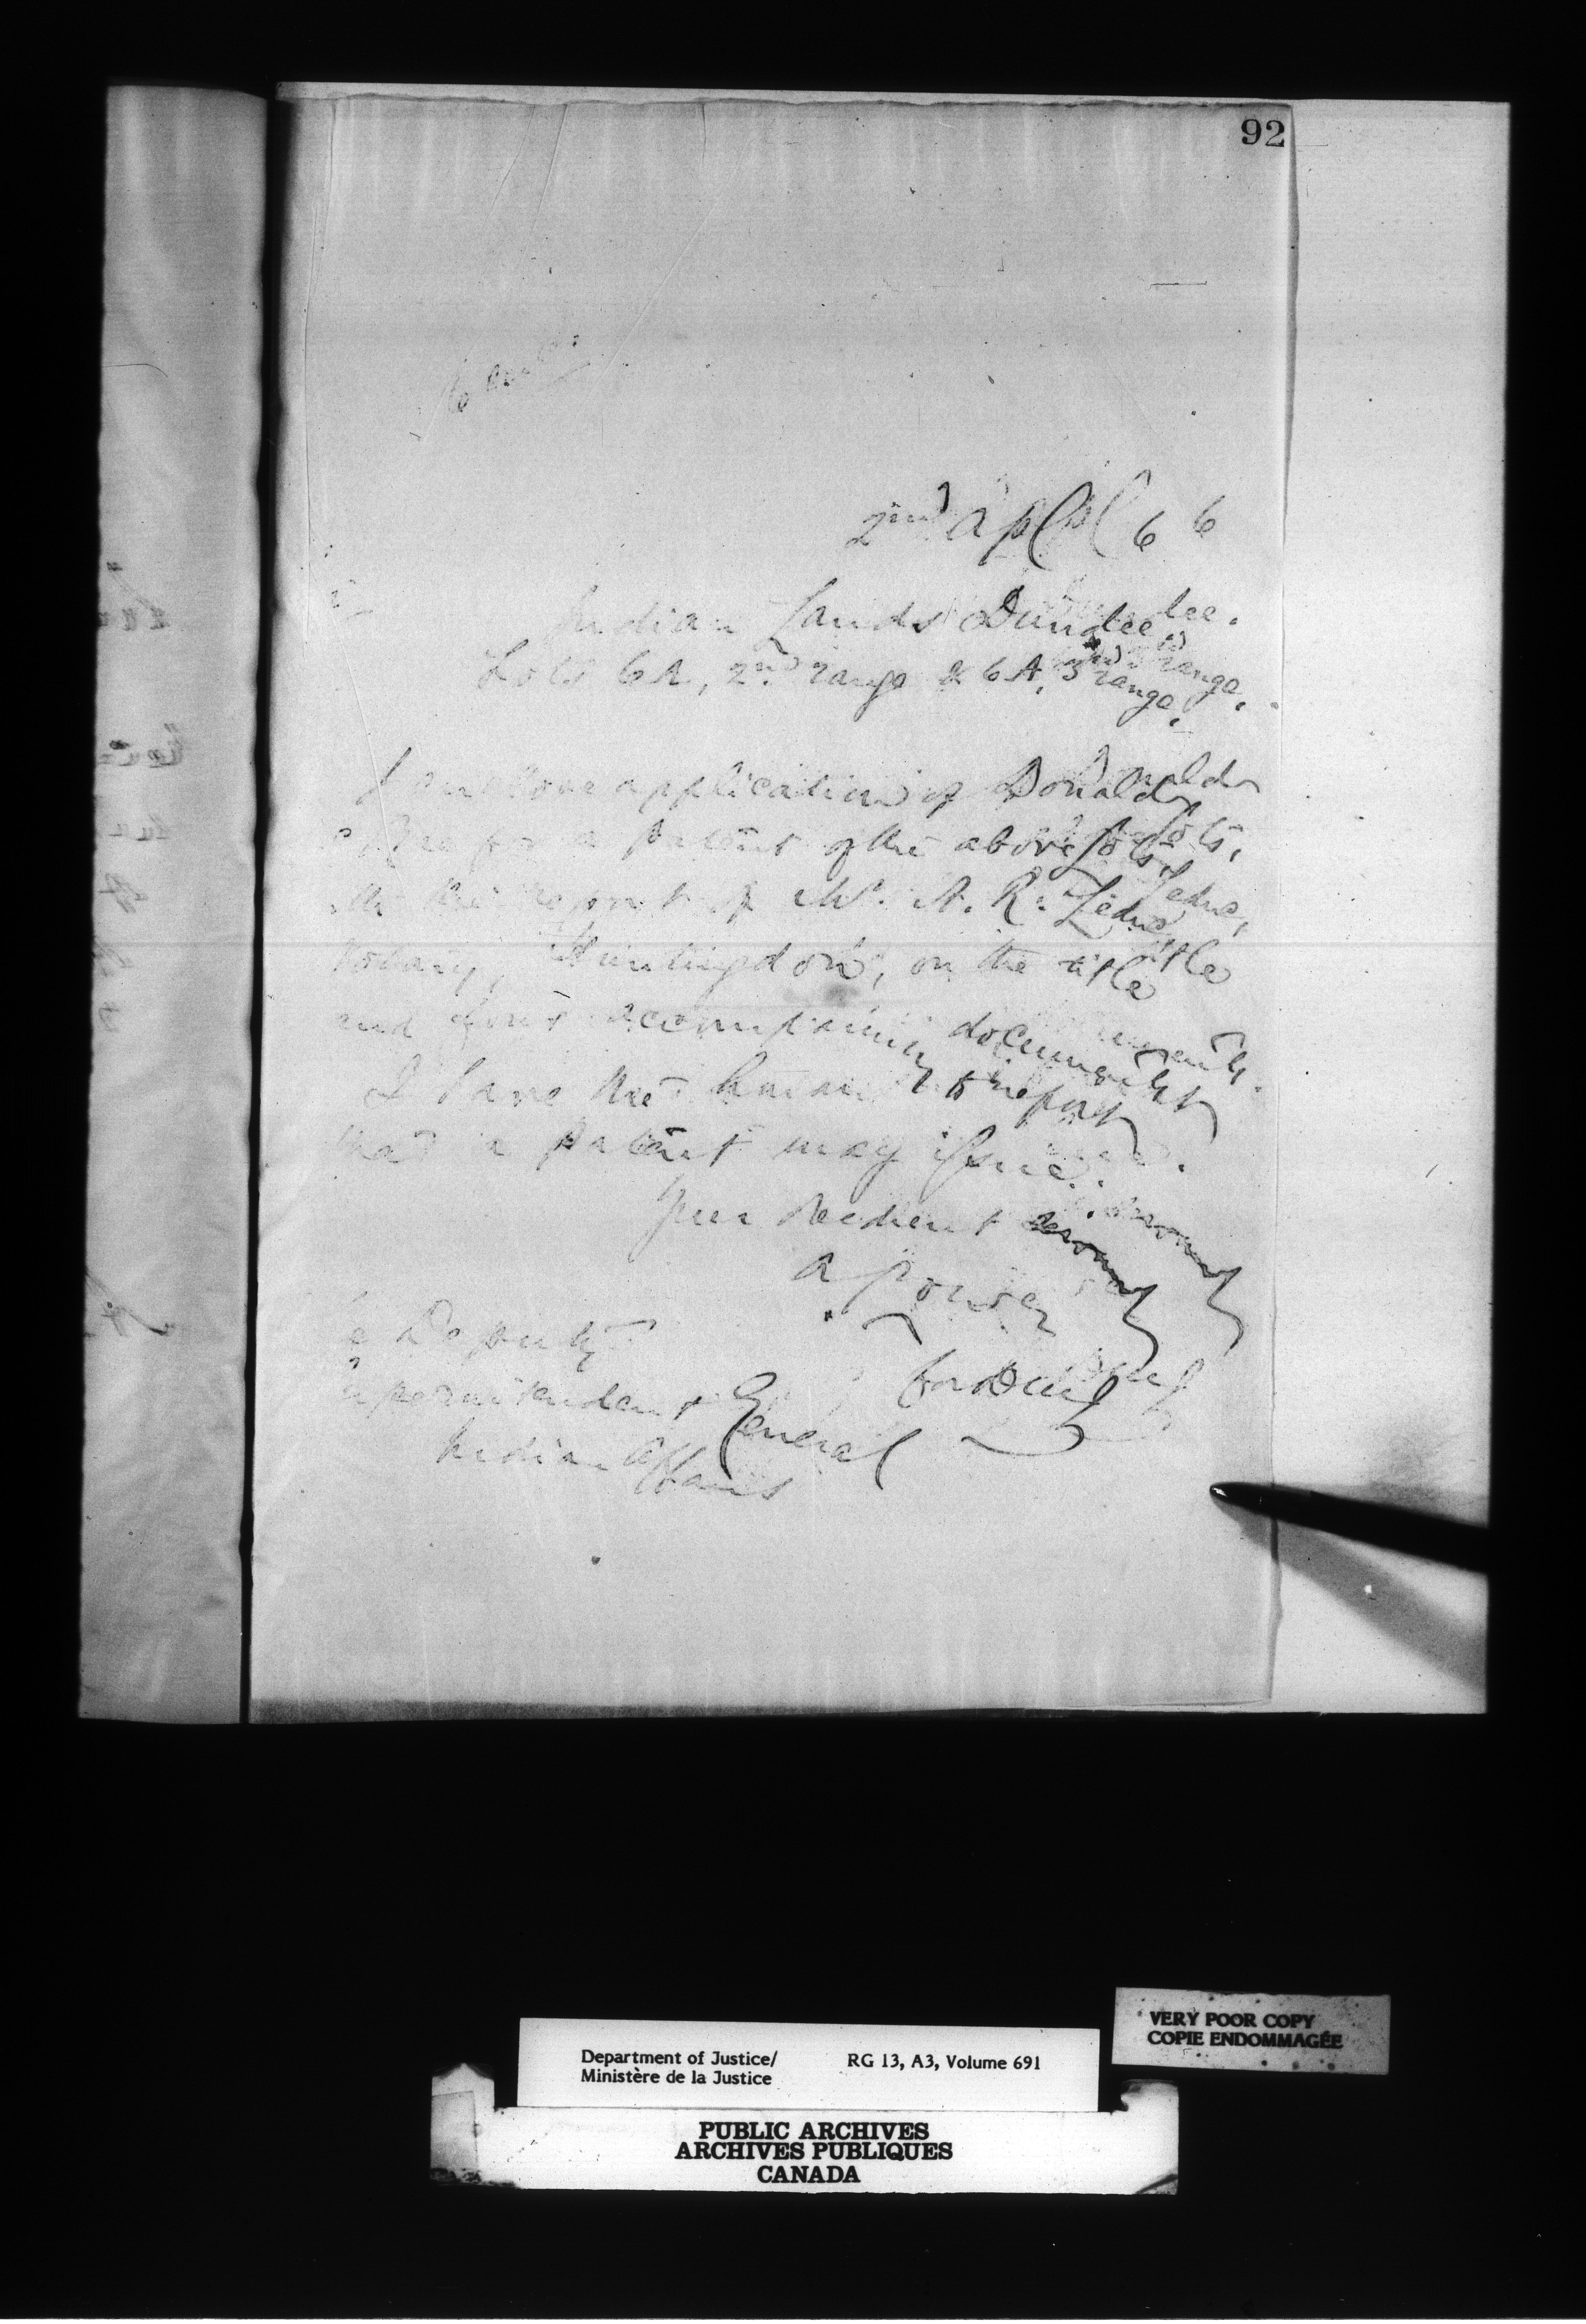 92
2nd April 6 6
Indian Lands Dundee.
Lots 6A, 2nd range & 6A, 3rd range.
I enclose application of Donald
for a patent of the above lots,
the report of Mr. A. R.
Notary, Huntingdon, on the title
and four accompanying documents.
I have the honour to report
that a patent may issue.
Your obedient servant
A Power
for D M J
e Deputy
uperintendent General
Indian Affairs
VERY POOR COPY
COPIE ENDOMMAGÉE
Department of Justice/
Ministère de la Justice
RG 13, A3, Volume 691
PUBLIC ARCHIVES
ARCHIVES PUBLIQUES
CANADA